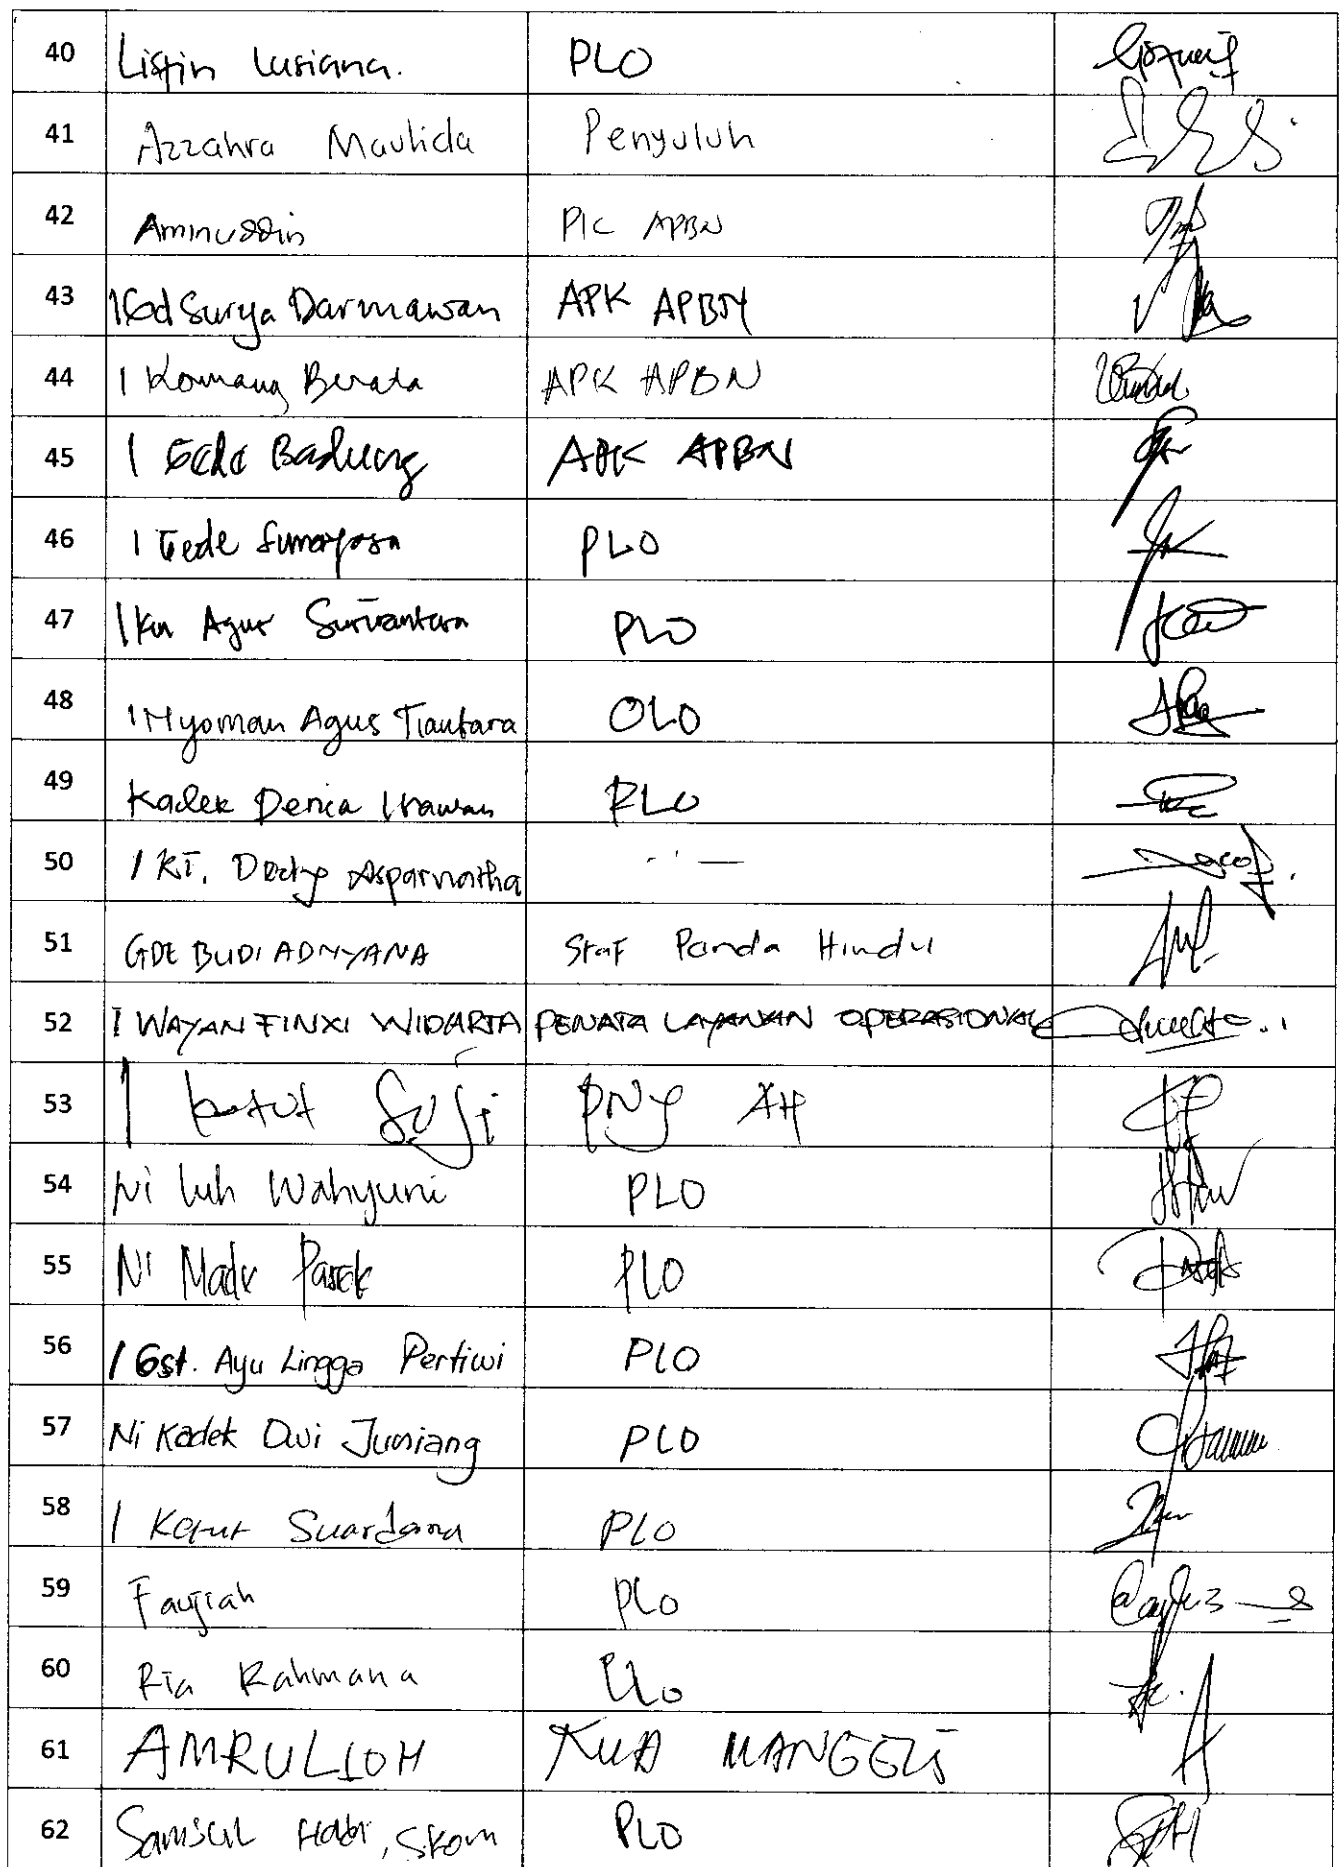 40 Listin Lusiana. PLO
41 Azzahra Maulida Penyuluh
42 Aminuddin PIC APBN
43 I Gd Surya Darmawan APK APBN
44 I Komang Berata APK APBN
45 I Gede Badung APK APBN
46 I Gede PLO
47 I Kt Agus PLO
48 I Nyoman Agus Tiantara OLO
49 Kadek Denca Irawan PLO
50 I KT. Asparnatha - " —
51 GDE BUDI ADNYANA Staf Penda Hindu
52 I WAYAN FINXI WIDIARTA PENATA LAYANAN OPERASIONAL
53 I Ketut Suji PNY AH
54 Ni Luh Wahyuni PLO
55 Ni Made Pasek PLO
56 I Gst. Ayu Lingga Pertiwi PLO
57 Ni Kadek Dwi Juniang PLO
58 I Ketut Suardana PLO
59 Faujiah PLO
60 Ria Rahmana PLO
61 AMRULLOH KUA MANGGIS
62 Samsul Hadi, SKom PLO